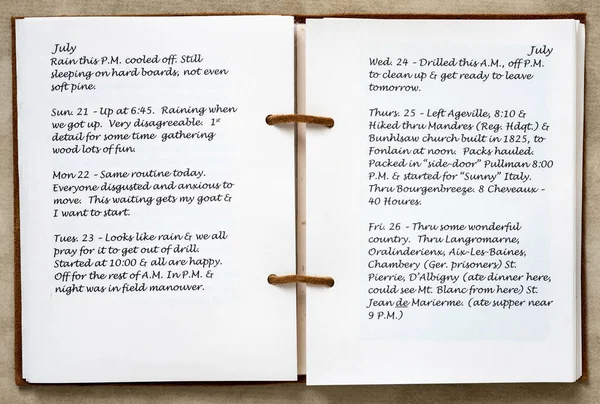 July
Rain this P.M. cooled off. Still
sleeping on hard boards, not even
soft pine.
Sun. 21 - Up at 6:45. Raining when
we got up. Very disagreeable. 1st
detail for some time gathering
wood lots of fun.
Mon 22 - Same routine today.
Everyone disgusted and anxious to
move. This waiting gets my goat &
I want to start.
Tues. 23 - Looks like rain & we all
pray for it to get out of drill.
Started at 10:00 & all are happy.
Off for the rest of A.M. In P.M. &
night was in field manouver.
July
Wed. 24 - Drilled this A.M., off P.M.
to clean up & get ready to leave
tomorrow.
Thurs. 25 - Left Ageville, 8:10 &
Hiked thru Mandres (Reg. Hdqt.) &
Bunhlsaw church built in 1825, to
Fonlain at noon. Packs hauled.
Packed in "side-door" Pullman 8:00
P.M. & started for "Sunny" Italy.
Thru Bourgenbreeze. 8 Cheveaux -
40 Houres.
Fri. 26 - Thru some wonderful
country. Thru Langromarne,
Oralinderienx, Aix-Les-Baines,
Chambery (Ger. prisoners) St.
Pierrie, D'Albigny (ate dinner here,
could see Mt. Blanc from here) St.
Jean de Marierme. (ate supper near
9 P.M.)